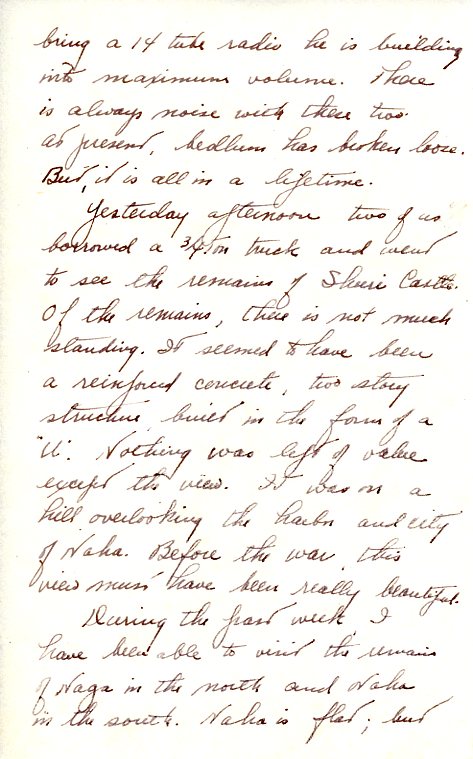 bring a 14 tube radio he is building
into maximum volume. There
is always noise with these two.
At present, bedlum has broken loose.
But, it is all in a lifetime.
Yesterday afternoon two of us
borrowed a 3/4 Ton truck and went
to see the remains of Shuri Castle.
Of the remains, there is not much
standing. It seemed to have been
a reinforced concrete, two story
structure, built in the form of a
"U". Nothing was left of value
except the view. It was on a
hill overlooking the harbor and city
of Naha. Before the war, this
view must have been really beautiful.
During the past week, I
have been able to visit the remains
of Naga in the north and Naha
in the south. Naha is flat; but